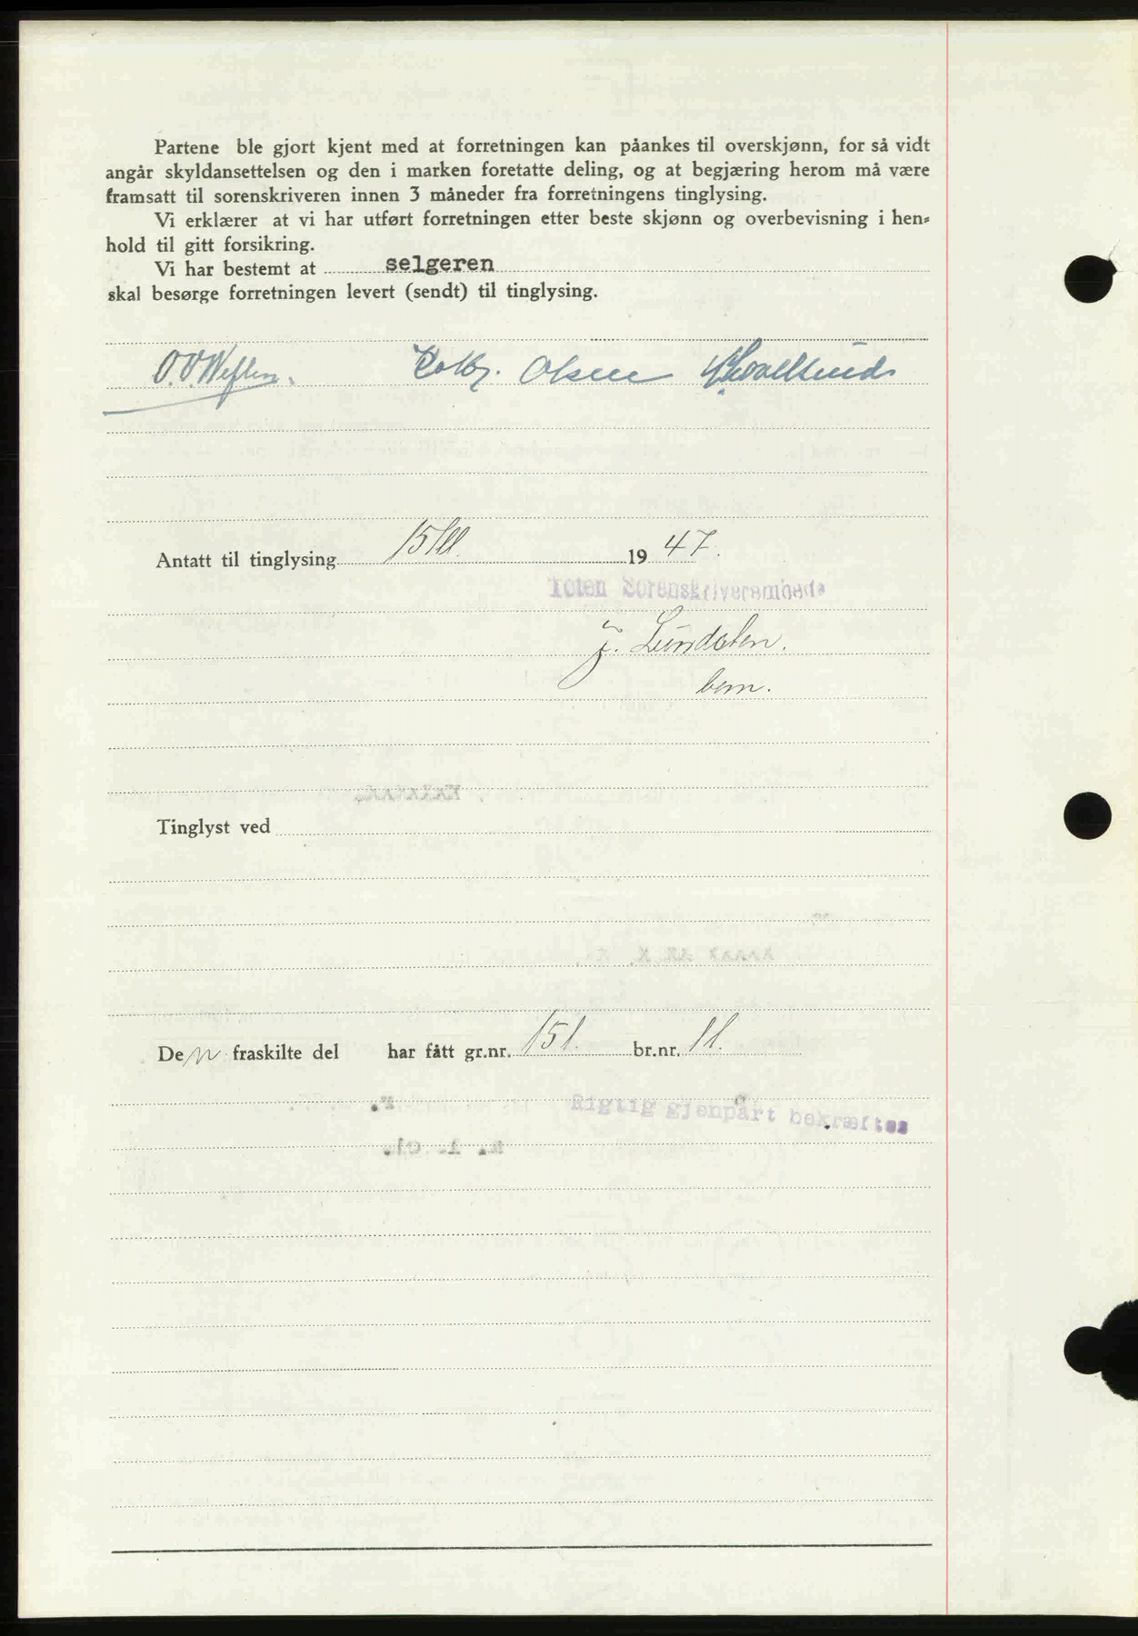 Partene ble gjort kjent med at forretningen kan påankes til overskjønn, for så vidt
angår skyldansettelsen og den i marken foretatte deling, og at begjæring herom må være
framsatt til sorenskriveren innen 3 måneder fra forretningens tinglysing.
Vi erklærer at vi har utført forretningen etter beste skjønn og overbevisning i hen-
hold til gitt forsikring.
Vi har bestemt at selgeren
skal besørge forretningen levert (sendt) til tinglysing.
Olsen
Antatt til tinglysing 1947.
Toten Sorenskriverembede
J. Lundsten.
bem.
Tinglyst ved
Den fraskilte del har fått gr.nr. 151. br.nr. 11.
Rigtig gjenpart bekræftes